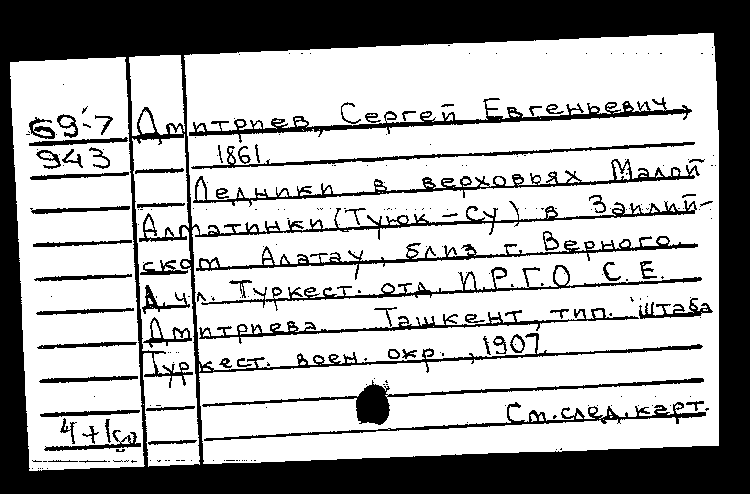 69-7 Дмитриев, Сергей Евгеньевич,
943 1861.
Ледники в верховьях Малой
Алматинки (Туюк-Су) в Заилий-
ском Алатау, близ г. Верного.
Д. чл. Туркест. отд. И.Р.Г.О С.Е.
Дмитриева. Ташкент, тип. штаба
Туркест. воен. окр., 1907.
См. след. карт.